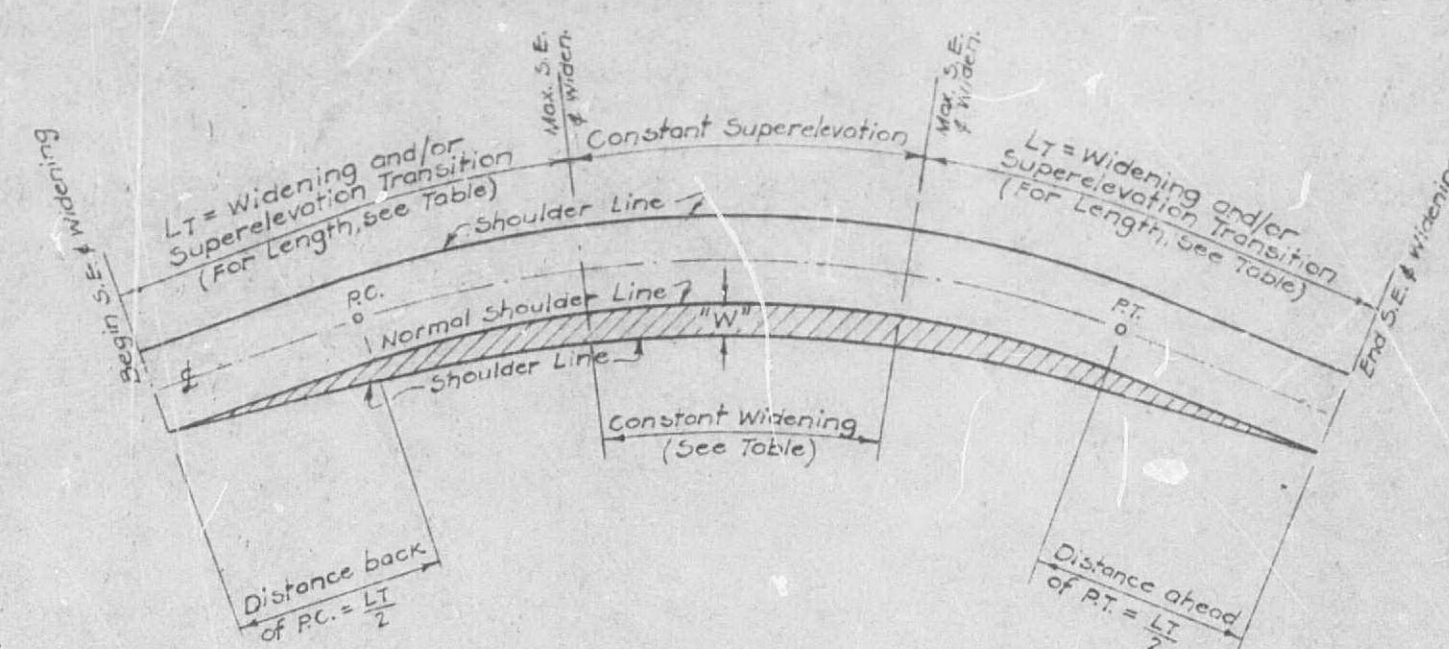 Begin S.E. & Widening
LT = Widening and/or
Superelevation Transition
(For Length, see Table)
Max. S.E.
& Widen.
Constant Superelevation
Max. S.E.
& Widen.
LT = Widening and/or
Superelevation Transition
(For Length, see Table)
End S.E. & Widening
Shoulder Line
P.C.
Normal Shoulder Line
"W"
P.T.
Shoulder Line
Constant Widening
(See Table)
Distance back
of P.C. = LT/2
Distance ahead
of P.T. = LT/2